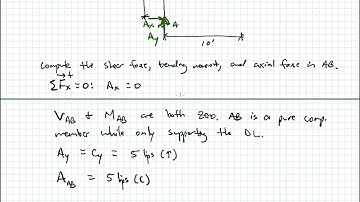 Ax A
Ay 10'
Compute the shear force, bending moment, and axial force in AB.
ΣFx = 0: Ax = 0
-1-
VAB & MAB are both zero. AB is a pure comp.
member while only supporting the DL.
Ay = Cy = 5 kips (↑)
AAB = 5 kips (C)